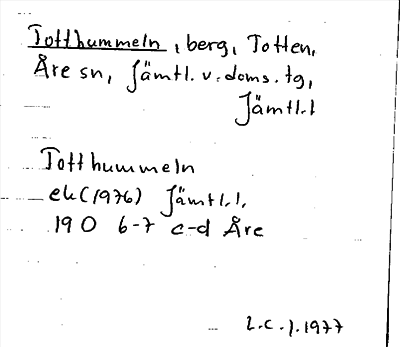 Totthummeln, berg, Totten,
Åre sn, Jämtl. v. doms. tg,
Jämtl. l
Totthummeln
ek (1976) Jämtl. l.
19 D 6-7 c-d Åre
L.C.J. 1977